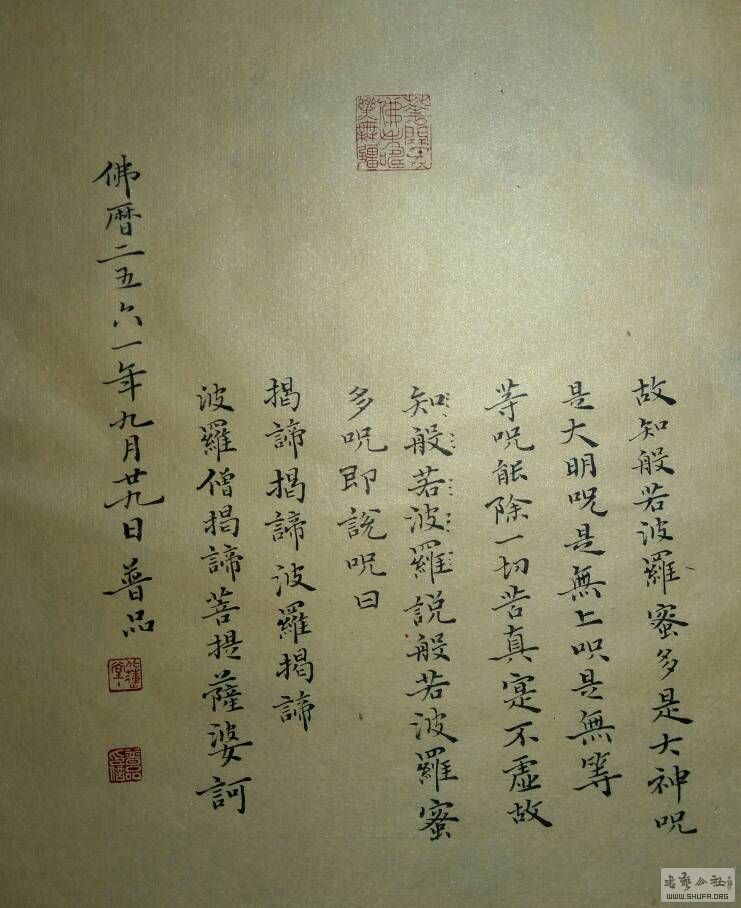 故知般若波羅蜜多是大神呪
是大明呪是無上呪是無等
等呪能除一切苦真寔不虛故
知般若波羅說般若波羅蜜
多呪即說呪曰
揭諦揭諦波羅揭諦
波羅僧揭諦菩提薩婆訶
佛暦二五六一年九月廿九日普品
書藝公社
WWW.SHUFA.ORG